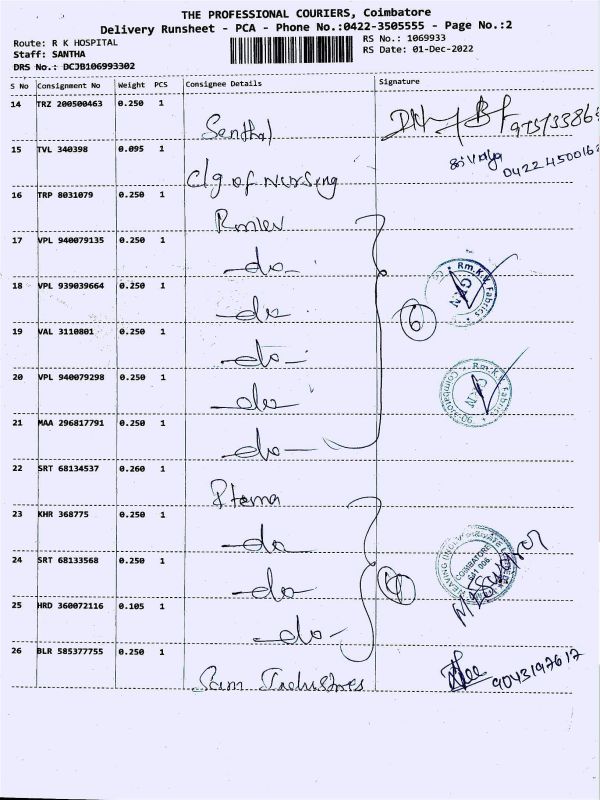 THE PROFESSIONAL COURIERS, Coimbatore
Delivery Runsheet - PCA - Phone No.:0422-3505555 - Page No.:2
Route: R K HOSPITAL
RS No.: 1069933
Staff: SANTHA
RS Date: 01-Dec-2022
DRS No.: DCJB106993302
S No Consignment No Weight PCS Consignee Details Signature
14 TRZ 200500463 0.250 1
15 TVL 340398 0.095 1 clg of Nursing
16 TRP 8031079 0.250 1
17 VPL 940079135 0.250 1 -do-
18 VPL 939039664 0.250 1 -do- 6 Rm.K.V. Fabrics
19 VAL 3110801 0.250 1 -do-
20 VPL 940079298 0.250 1 -do- Rm.K.V. Fabrics Coimbatore
21 MAA 296817791 0.250 1 -do-
22 SRT 68134537 0.260 1
23 KHR 368775 0.250 1 -do-
24 SRT 68133568 0.250 1 -do- 4 COIMBATORE 641 006
25 HRD 360072116 0.105 1 -do-
26 BLR 585377755 0.250 1 Sam Industries 9043197617